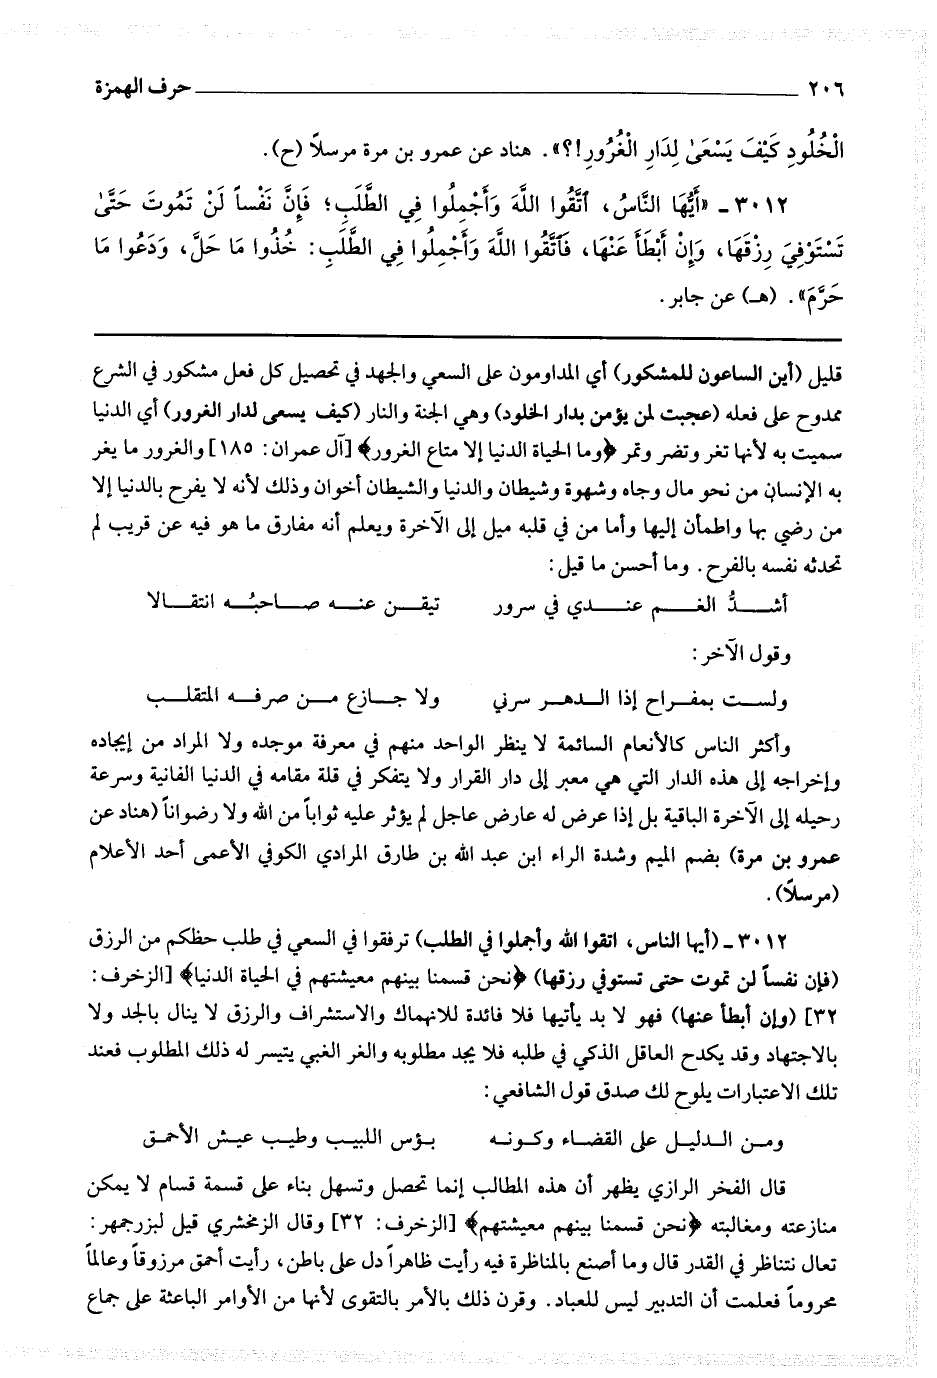 ٢٠٦ ــــــ حرف الهمزة
الْخُلُودِ كَيْفَ يَسْعَىٰ لِدَارِ الْغُرُورِ!؟». هناد عن عمرو بن مرة مرسلاً (ح).
٣٠١٢ ـ «أَيُّهَا النَّاسُ، ٱتَّقُوا اللَّهَ وَأَجْمِلُوا فِي الطَّلَبِ؛ فَإِنَّ نَفْساً لَنْ تَمُوتَ حَتَّىٰ
تَسْتَوْفِيَ رِزْقَهَا، وَإِنْ أَبْطَأَ عَنْهَا، فَٱتَّقُوا اللَّهَ وَأَجْمِلُوا فِي الطَّلَبِ: خُذُوا مَا حَلَّ، وَدَعُوا مَا
حَرَّمَ». (هـ) عن جابر.
قليل (أين الساعون للمشكور) أي المداومون على السعي والجهد في تحصيل كل فعل مشكور في الشرع
ممدوح على فعله (عجبت لمن يؤمن بدار الخلود) وهي الجنة والنار (كيف يسعى لدار الغرور) أي الدنيا
سميت به لأنها تغر وتضر وتمر ﴿وما الحياة الدنيا إلا متاع الغرور﴾ [آل عمران: ١٨٥] والغرور ما يغر
به الإنسان من نحو مال وجاه وشهوة وشيطان والدنيا والشيطان أخوان وذلك لأنه لا يفرح بالدنيا إلا
من رضي بها واطمأن إليها وأما من في قلبه ميل إلى الآخرة ويعلم أنه مفارق ما هو فيه عن قريب لم
تحدثه نفسه بالفرح. وما أحسن ما قيل:
أشـــدُّ الغـــم عنـــدي في سرور تيقـــن عنـــه صـــاحبُـــه انتقـــالا
وقول الآخر:
ولســت بمفــراح إذا الــدهــر سرني ولا جــازع مــن صرفــه المتقلــب
وأكثر الناس كالأنعام السائمة لا ينظر الواحد منهم في معرفة موجده ولا المراد من إيجاده
وإخراجه إلى هذه الدار التي هي معبر إلى دار القرار ولا يتفكر في قلة مقامه في الدنيا الفانية وسرعة
رحيله إلى الآخرة الباقية بل إذا عرض له عارض عاجل لم يؤثر عليه ثواباً من الله ولا رضواناً (هناد عن
عمرو بن مرة) بضم الميم وشدة الراء ابن عبد الله بن طارق المرادي الكوفي الأعمى أحد الأعلام
(مرسلاً).
٣٠١٢ ـ (أيها الناس، اتقوا الله وأجملوا في الطلب) ترفقوا في السعي في طلب حظكم من الرزق
(فإن نفساً لن تموت حتى تستوفي رزقها) ﴿نحن قسمنا بينهم معيشتهم في الحياة الدنيا﴾ [الزخرف:
٣٢] (وإن أبطأ عنها) فهو لا بد يأتيها فلا فائدة للانهماك والاستشراف والرزق لا ينال بالجد ولا
بالاجتهاد وقد يكدح العاقل الذكي في طلبه فلا يجد مطلوبه والغر الغبي يتيسر له ذلك المطلوب فعند
تلك الاعتبارات يلوح لك صدق قول الشافعي:
ومــن الــدليــل على القضــاء وكــونــه بــؤس اللبيــب وطيــب عيــش الأحمــق
قال الفخر الرازي يظهر أن هذه المطالب إنما تحصل وتسهل بناء على قسمة قسام لا يمكن
منازعته ومغالبته ﴿نحن قسمنا بينهم معيشتهم﴾ [الزخرف: ٣٢] وقال الزمخشري قيل لبزرجمهر:
تعال نتناظر في القدر قال وما أصنع بالمناظرة فيه رأيت ظاهراً دل على باطن، رأيت أحمق مرزوقاً وعالماً
محروماً فعلمت أن التدبير ليس للعباد. وقرن ذلك بالأمر بالتقوى لأنها من الأوامر الباعثة على جماع